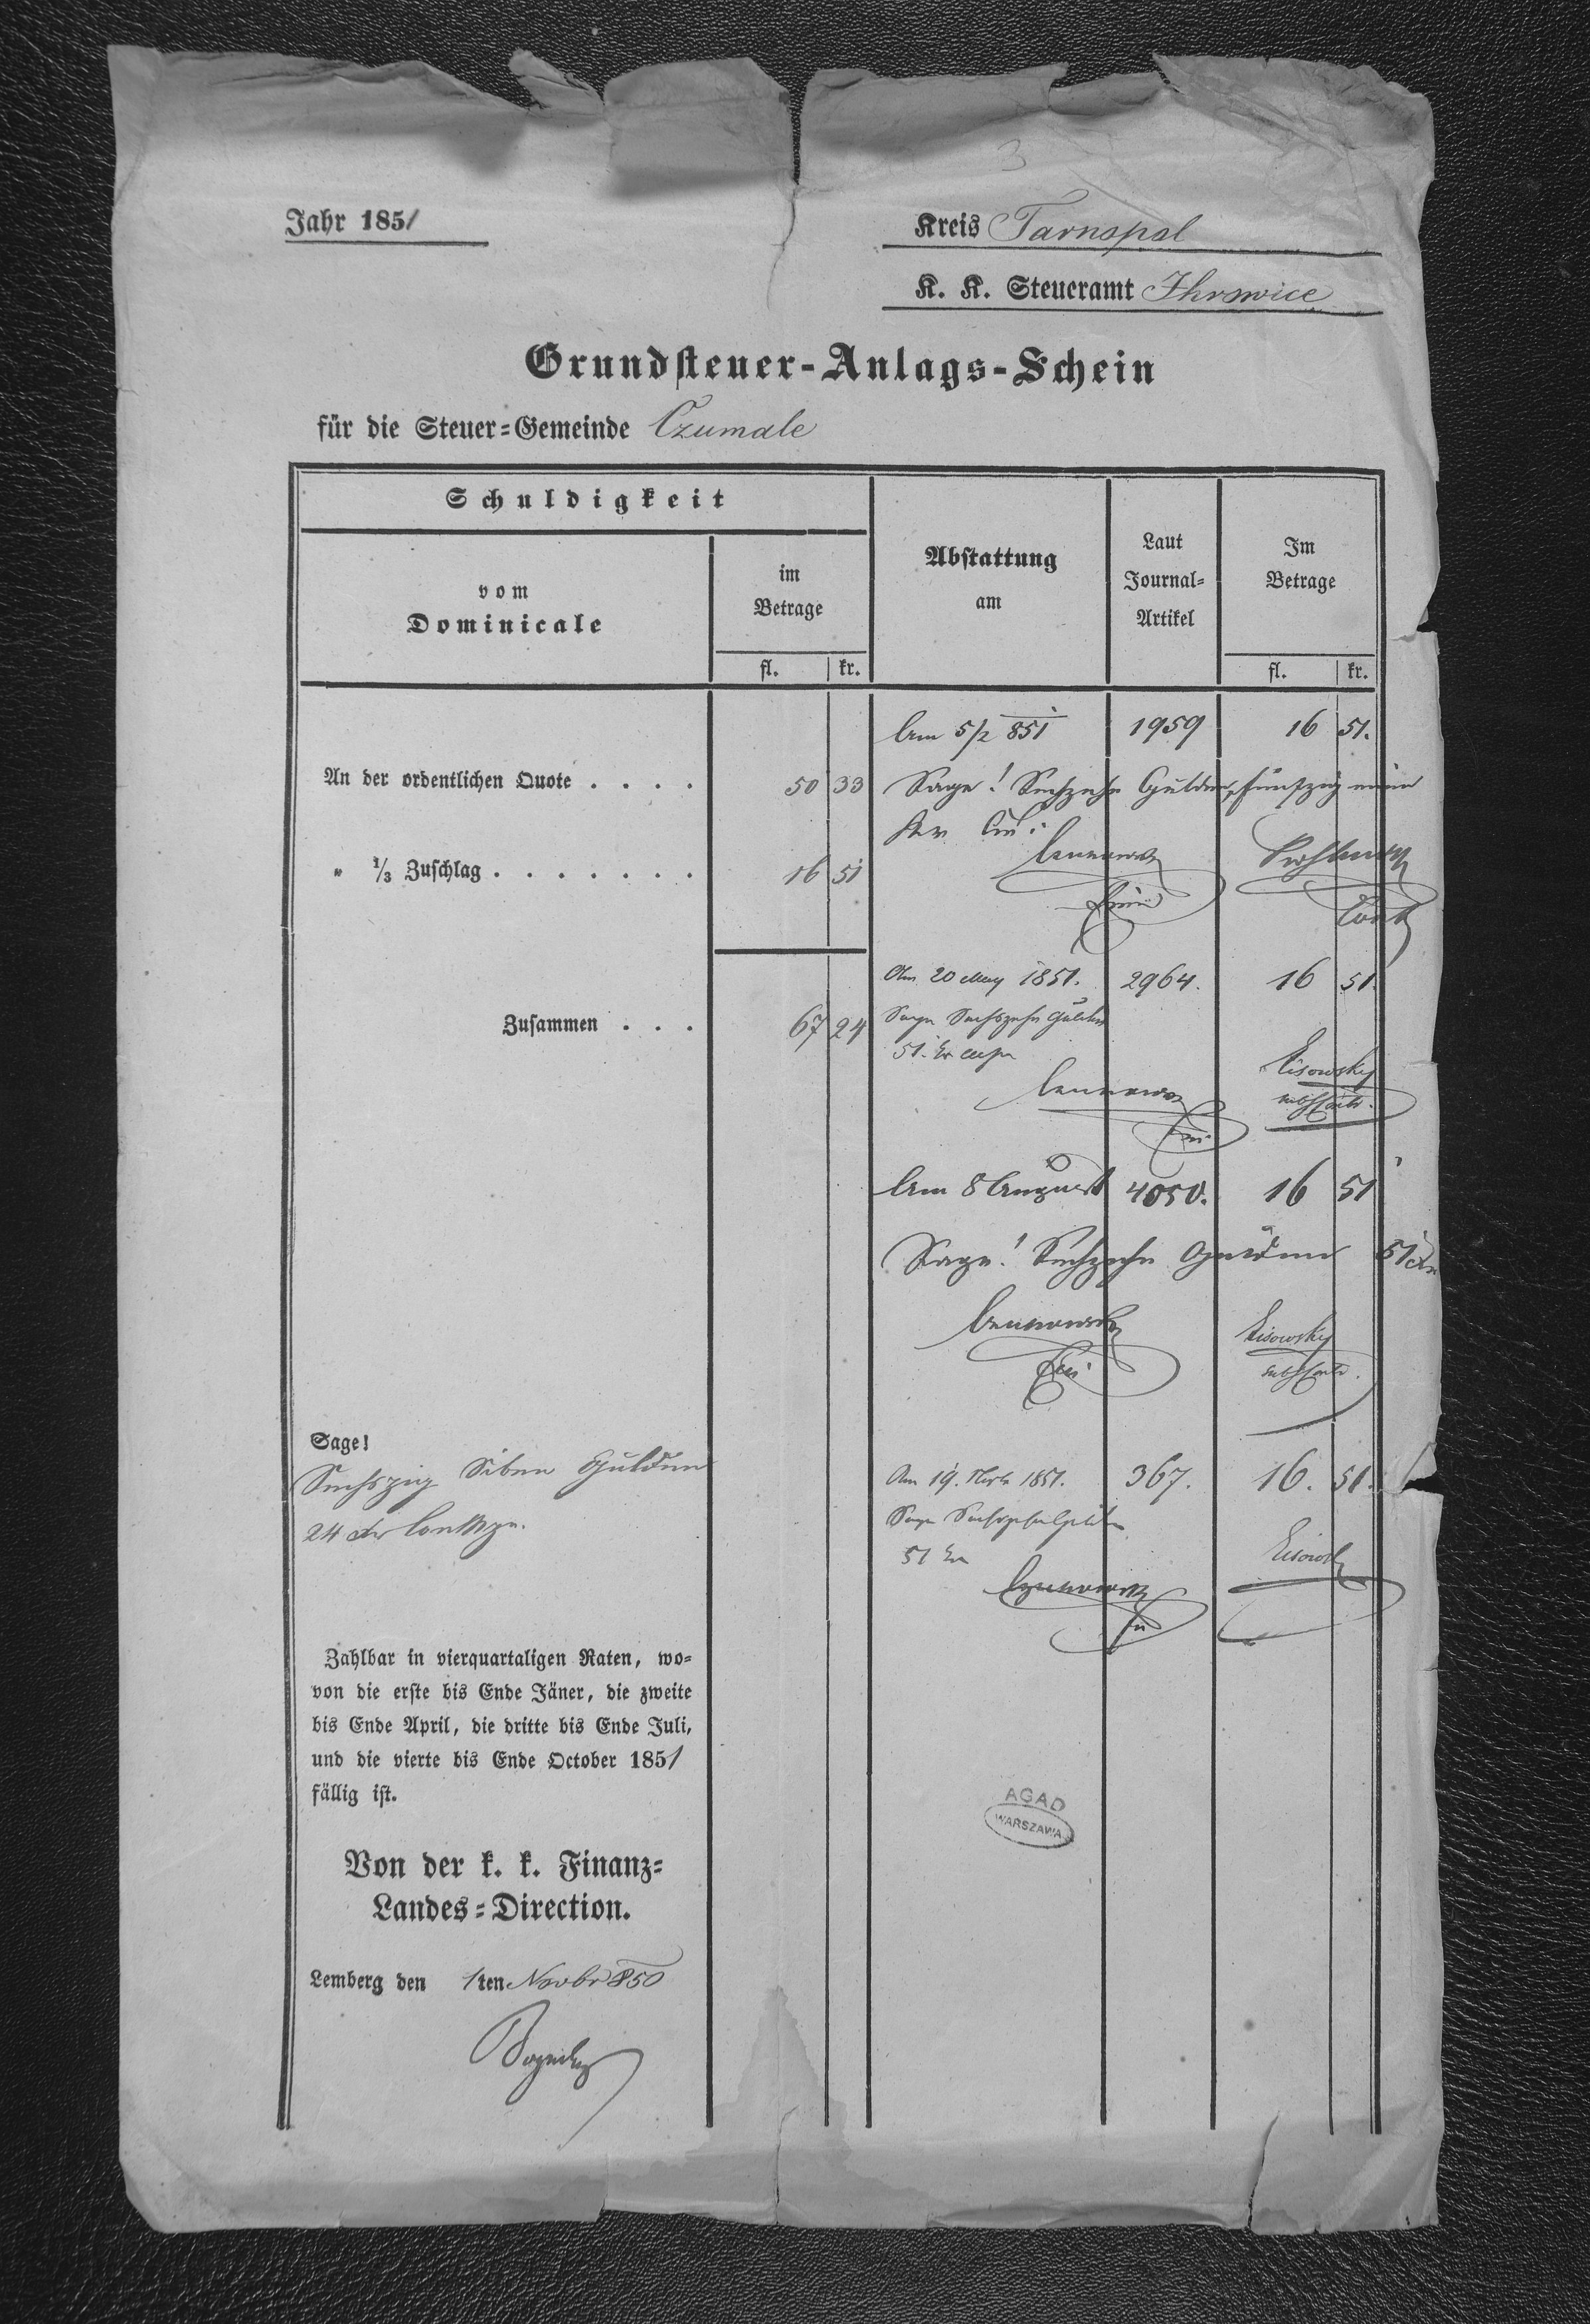 3
Jahr 1851
Kreis Tarnopol
K. K. Steueramt Ihrowice
Grundsteuer-Anlags-Schein
für die Steuer=Gemeinde Czumale
Schuldigkeit
vom
Dominicale
im
Betrage
fl. kr.
Abstattung
am
Laut
Journal=
Artikel
Im
Betrage
fl. kr.
Am 5/2 851 1959 16 51.
An der ordentlichen Quote . . . . 50 33
Sage! Sechzehn Gulden, fünfzig ein
" 1/3 Zuschlag . . . . . . . 16 51
Cont
Am 20 May 1851. 2964. 16 51.
Zusammen . . . 67 24
Sage Sechszehn Gulden
51 kr
Lisowsky
Am 8 August 4050. 16 51
Sage! Sechzehn Gulden 51 kr
Lisowsky
Sage!
Sechszig Siben Gulden
24 kr
Am 19. 1851. 367. 16. 51.
Sage
51 kr
Lisowsk
Zahlbar in vierquartaligen Raten, wo=
von die erste bis Ende Jäner, die zweite
bis Ende April, die dritte bis Ende Juli,
und die vierte bis Ende October 1851
fällig ist.
AGAD
WARSZAWA
Von der k. k. Finanz=
Landes=Direction.
Lemberg den 1ten Novbr 850